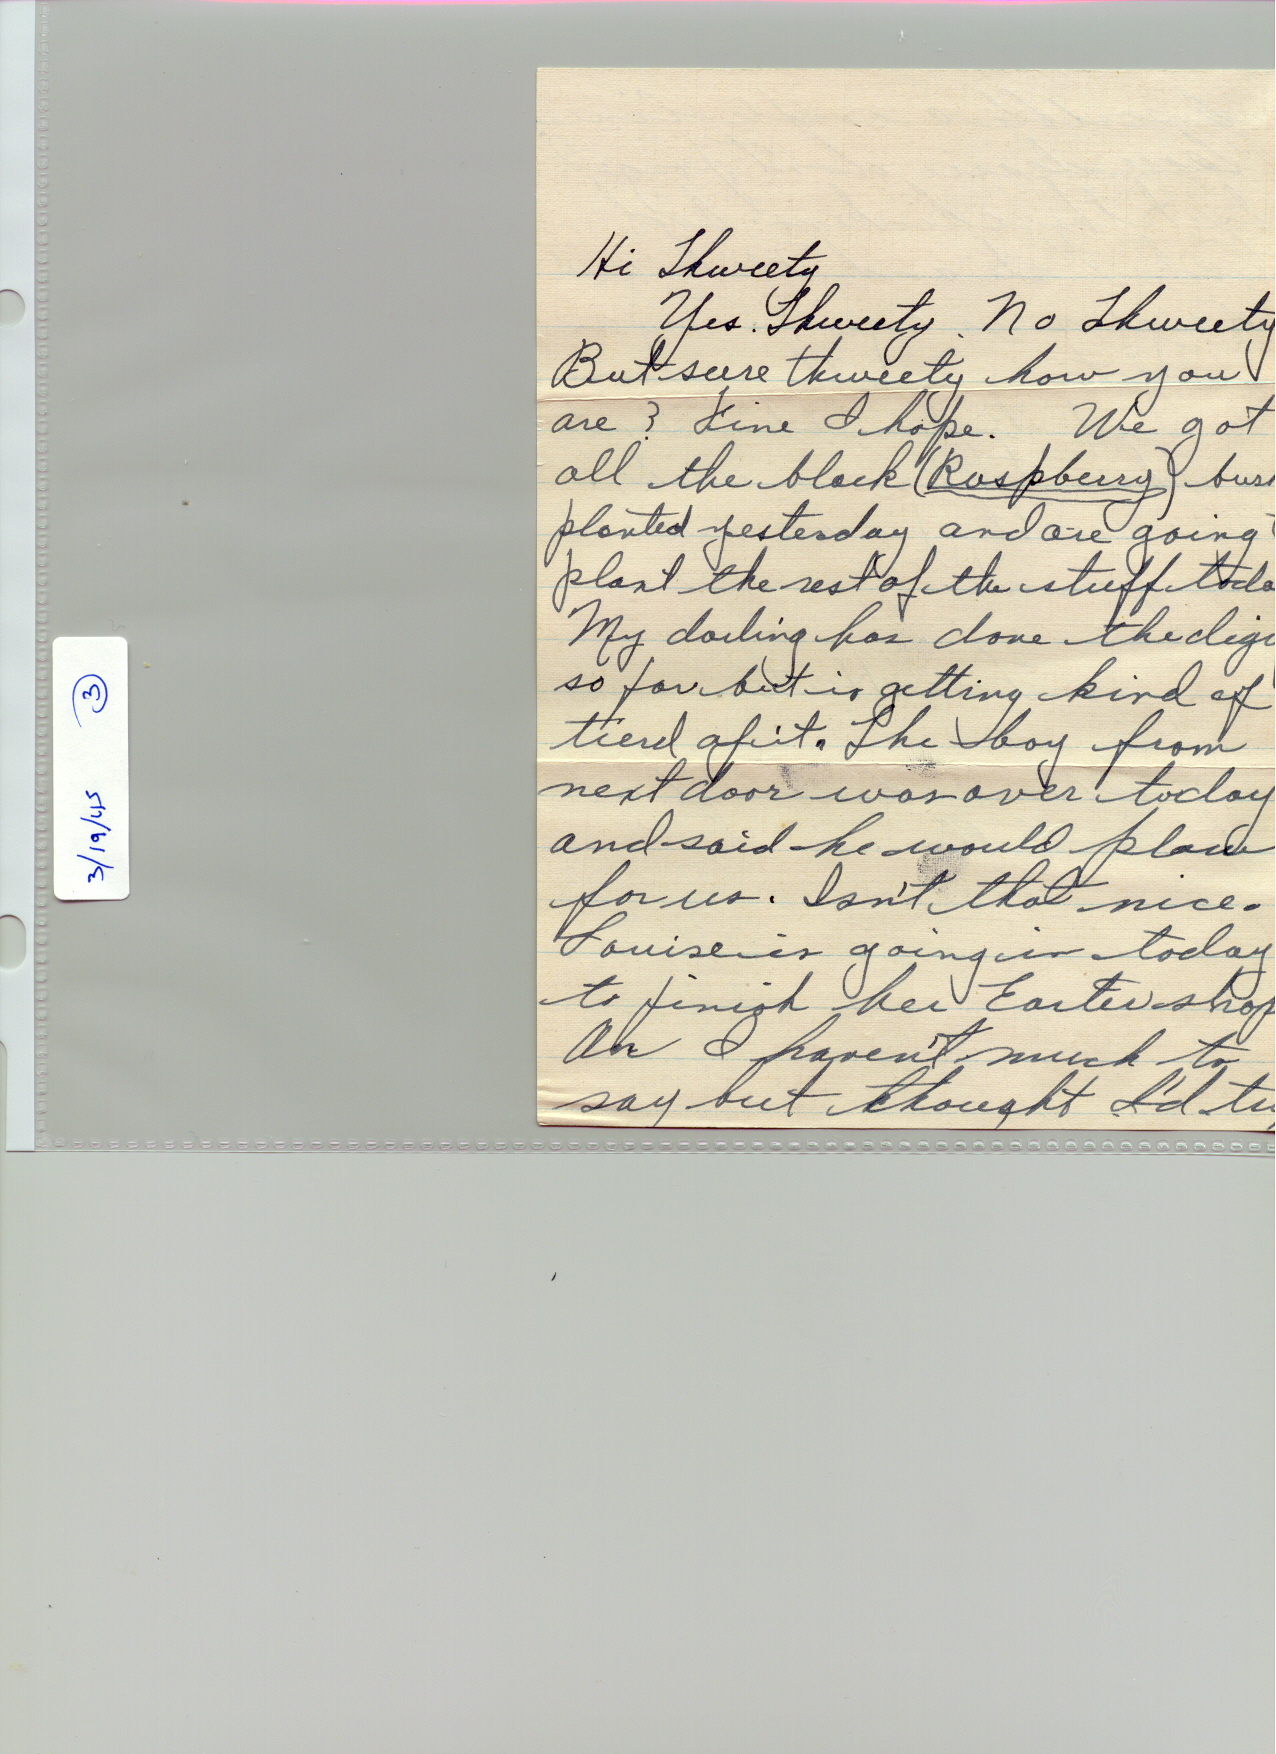 Hi Thweety
Yes. Thweety. No Thweety
But sure thweety how you
are? Fine I hope. We got
all the black (Raspberry) bus
planted yesterday and are going
plant the rest of the stuff toda
My darling has done the digi
so far but is getting kind of
tierd of it. The boy from
next door was over today
and said he would plow
for us. Isn't that nice.
Louise is going in today
to finish her Easter shop
I haven't much to
say but thought I'd try
3/19/45 3